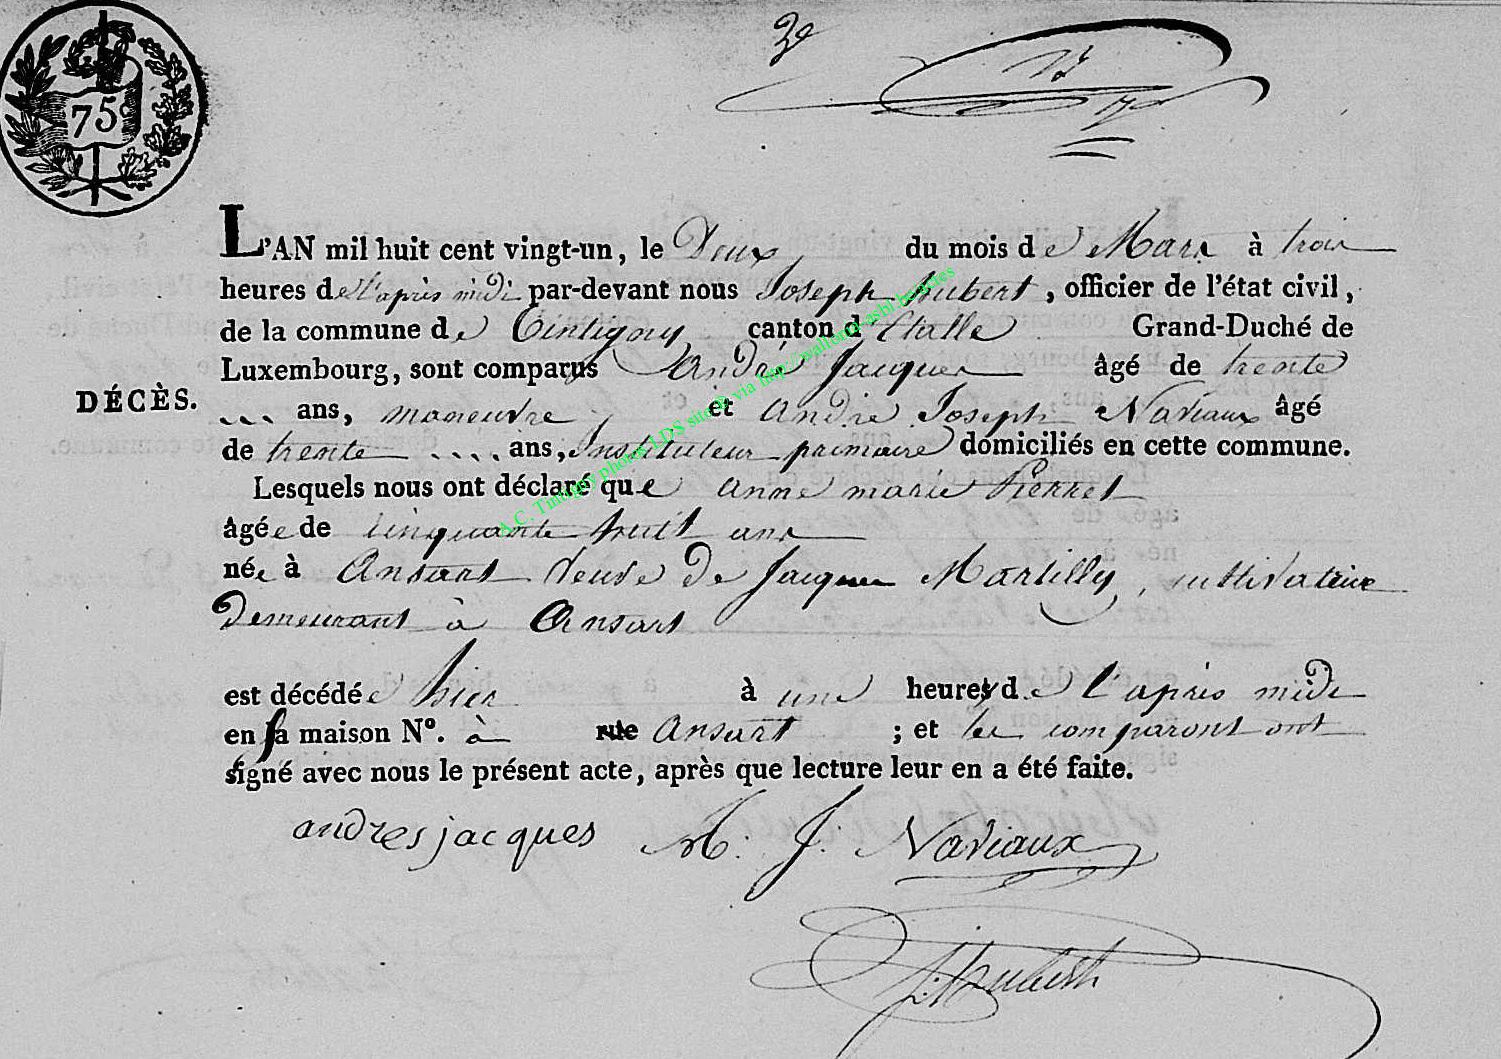 75
3e
L'AN mil huit cent vingt-un, le Deux du mois de Mars à trois
heures de l'après midi par-devant nous Joseph hubert, officier de l'état civil,
de la commune de Tintigny canton d'Etalle Grand-Duché de
Luxembourg, sont comparus André Jacques âgé de trente
DÉCÈS.
ans, manoeuvre et André Joseph Naviaux âgé
de trente .... ans, Instituteur primaire domiciliés en cette commune.
Lesquels nous ont déclaré que anne marie Pierret
âgée de cinquante huit ans
née à Ansart veuve de Jacques Martilly, cultivatrice
Demeurant à Ansart
est décédée hier à une heure de l'après midi
en sa maison No. à rue Ansart ; et les comparants ont
signé avec nous le présent acte, après que lecture leur en a été faite.
andres jacques J. Naviaux
J. hubert
A.C. Tintigny photos LDS site B via http://wallonia-asbl bageles